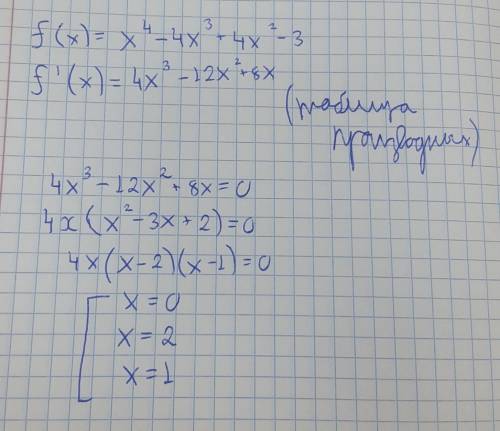 f(x) = x⁴ - 4x³ + 4x² - 3
f'(x) = 4x³ - 12x² + 8x
(таблица
производных)
4x³ - 12x² + 8x = 0
4x(x² - 3x + 2) = 0
4x(x - 2)(x - 1) = 0
[ x = 0
x = 2
x = 1